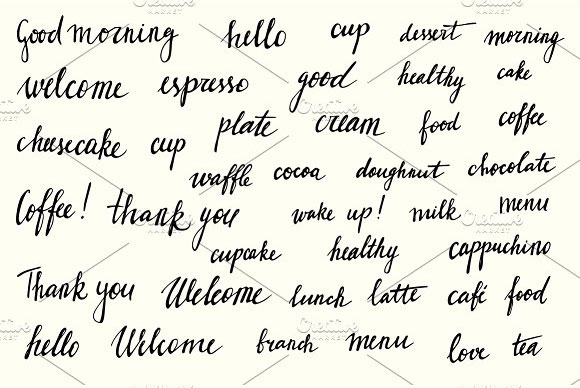 Good morning hello cup dessert morning
welcome espresso good healthy cake
cheesecake cup plate cream food coffee
waffle cocoa doughnut chocolate
Coffee! thank you wake up! milk menu
cupcake healthy cappuchino
Thank you Welcome lunch latte café food
hello Welcome branch menu love tea
Creative MARKET